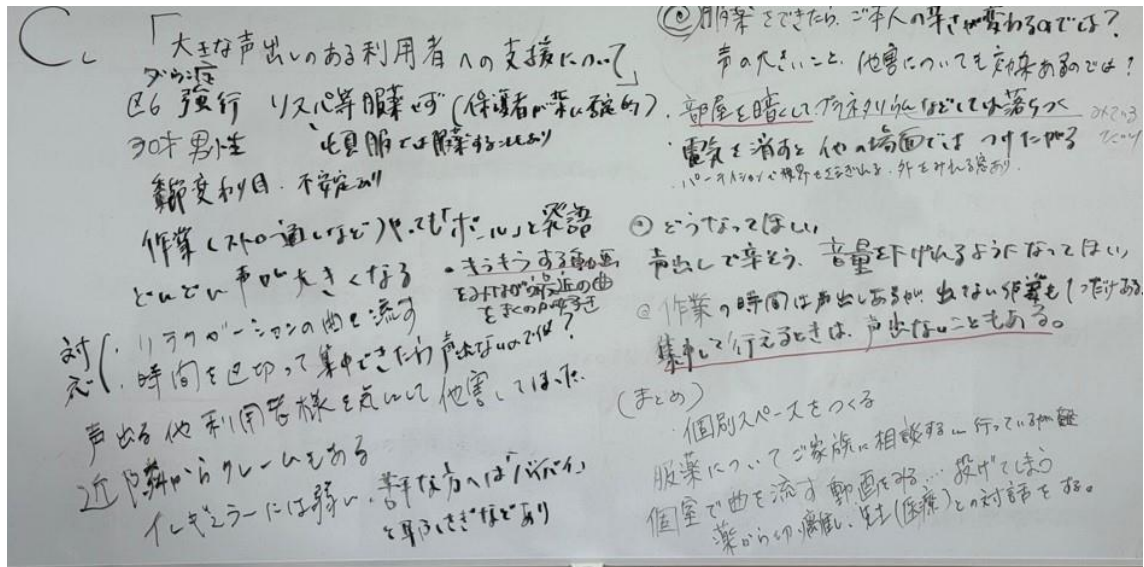 C.「大きな声出しのある利用者への支援について」
ダウン症
区6 強行 リスパ等服薬せず(保護者が薬に否定的)
30才 男性 ・頓服では服薬することもあり
季節変わり目、不安定あり
作業(ストロー通しなど)やっても「ボール」と発語
どんどん声が大きくなる
・きらきらする動画
をみながら最近の曲
をきくのが好き
対応
・リラクゼーションの曲を流す
・時間を区切って集中できたら声出ないのでは?
声出る他利用者様を気にして他害してしまった
近隣からクレームもある
イレギュラーには弱い、苦手な方へは「バイバイ」
と耳ふさぎなどあり
◎服薬をできたら、ご本人の辛さが変わるのでは?
声の大きいこと、他害についても効果あるのでは?
・部屋を暗くして プラネタリウムなどしては 落ちつく
・電気を消すと他の場面では つけたがる
・パーテーションで視界をさえぎれる、外をみれる窓あり
◎どうなってほしい
声出しで辛そう、音量を下げれるようになってほしい
◎作業の時間は声出しあるが、出ない作業も1つだけある
集中して行えるときは、声出ないこともある。
(まとめ)
・個別スペースをつくる
服薬についてご家族に相談する… 行っているが
個室で曲を流す 動画をみる… 投げてしまう
薬から切り離し、先生(医療)との対話をする。